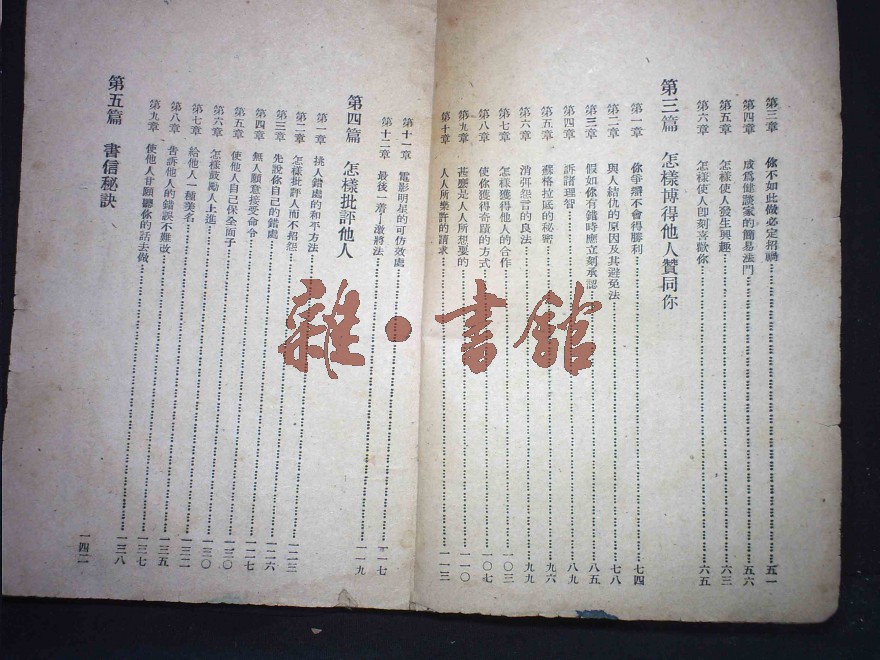 第三章 你不如此做必定招禍 五一
第四章 成爲健談家的簡易法門 五六
第五章 怎樣使人發生興趣 六三
第六章 怎樣使人卽刻喜歡你 六五
第三篇 怎樣博得他人贊同你
第一章 你爭辯不會得勝利 七四
第二章 與人結仇的原因及其避免法 七八
第三章 假如你有錯時應立刻承認 八五
第四章 訴諸理智 八九
第五章 蘇格拉底的秘密 九六
第六章 消弭怨言的良法 九九
第七章 怎樣獲得他人的合作 一〇三
第八章 使你獲得奇蹟的方式 一〇七
第九章 甚麼是人人所想要的 一一〇
第十章 人人所樂許的請求 一一三
第十一章 電影明星的可仿效處 一一七
第十二章 最後一着—激將法 一一九
第四篇 怎樣批評他人
第一章 挑人錯處的和平方法
第二章 怎樣批評人而不招怨 一二三
第三章 先說你自己的錯處 一二六
第四章 無人願意接受命令 一二七
第五章 使他人自己保全面子 一三〇
第六章 怎樣鼓勵人上進 一三〇
第七章 給他人一種美名 一三二
第八章 告訴他人的錯誤不難改 一三五
第九章 使他人甘願聽你的話去做 一三七
一三八
第五篇 書信秘訣 一四二
雜·書館